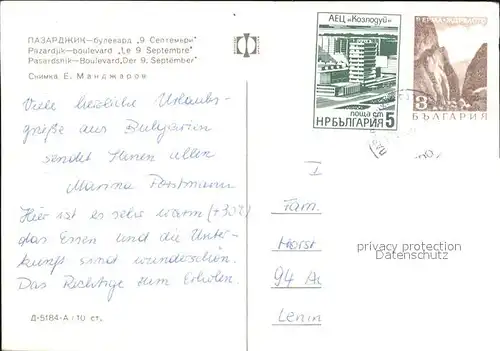 ПАЗАРДЖИК—булевард „9 Септември"
Pazardjik—boulevard „Le 9 Septembre"
Pasardshik—Boulevard „Der 9. September"
Снимка Е. Манджаров
Viele herzliche Urlaubs-
grüße aus Bulgarien
sendet Ihnen allen
Marina
Hier ist es sehr warm (+30°)
das Essen und die Unter-
kunft sind wunderschön.
Das Richtige zum Erholen.
Д-5184-А / 10 ст.
АЕЦ „Козлодуй"
поща ст
НР БЪЛГАРИЯ 5
8
БЪЛГАРИЯ
Fam.
Horst
94
Lenin
privacy protection
Datenschutz